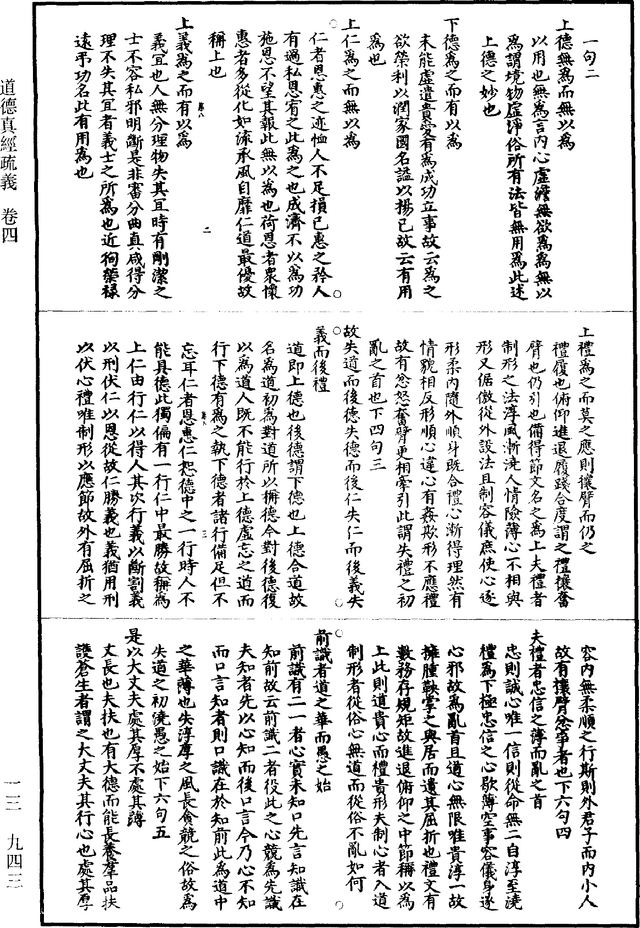 一句二
上德無為而無以為
以用也無為言內心虛澹無欲為為無以
為謂境物虛淨俗所有法皆無用為此述
上德之妙也
下德為之而有以為
未能虛遣貴受有為成功立事故云為之
欲榮利以潤家國名謚以楊已故云有用
為也
上仁為之而無以為
仁者恩惠之迹恤人不足損已惠之矜人
有過私恩宥之此為之也成濟不以為功
施恩不望其報此無以為也荷恩者衆懷
惠者多從化如流承風自靡仁道最優故
稱上也
上義為之而有以為
義宜也人無分理物失其宜時有剛潔之
士不容私邪明斷是非審分曲真咸得分
理不失其宜者義士之所為也近徇榮祿
遠弔功名此有用為也
上禮為之而莫之應則攘臂而仍之
禮履也俯仰進退履踐合度謂之禮攘奮
臂也仍引也備得節文名之為上夫禮者
制形之法淳風漸澆人情險薄心不相與
形又倨傲從外設法且制容儀庶使心逐
形柔內隨外順身既合禮心漸得理然有
情貌相反形順心違心有姦欺形不應禮
故有忿怒奮臂更相牽引此謂失禮之初
亂之首也下四句三
故失道而後德失德而後仁失仁而後義失
義而後禮
道即上德也後德謂下德也上德合道故
名為道初為對道所以稱德今對後德復
以為道人既不能行於上德虛忘之道而
行下德有為之執下德者諸行備足但不
忘耳仁者恩惠仁恕德中之一行時人不
能具德此獨偏有一行仁中最勝故稱為
上仁由行仁以得人其次行義以斷割義
以刑伏仁以恩從故仁勝義也義猶用刑
以伏心禮唯制形以應節故外有屈折之
容內無柔順之行斯則外君子而內小人
故有攘臂忿爭者也下六句四
夫禮者忠信之薄而亂之首
忠則誠心唯一信則從命無二自淳至澆
禮為下極忠信之心歇薄空事容儀身遂
心邪故為亂首且道心無限唯貴淳一故
擁腫鞅掌之與居而遺其屈折也禮文有
數務存規矩故進退俯仰之中節稱以為
上此則道貴心而禮貴形夫制心者入道
制形者從俗心無道而從俗不亂如何
前識者道之華而愚之始
前識有二一者心實未知口先言知識在
知前故云前識二者役此之心競為先識
夫知者先以心知而後口言今乃心不知
而口言知者則口識在於知前此為道中
之華薄也失淳厚之風長貪競之俗故為
失道之初澆愚之始下六句五
是以大丈夫處其厚不處其薄
丈長也夫扶也有大德而能長養羣品扶
護蒼生者謂之大丈夫其行心也處其厚
道德真經疏義　卷四
一三　九四三